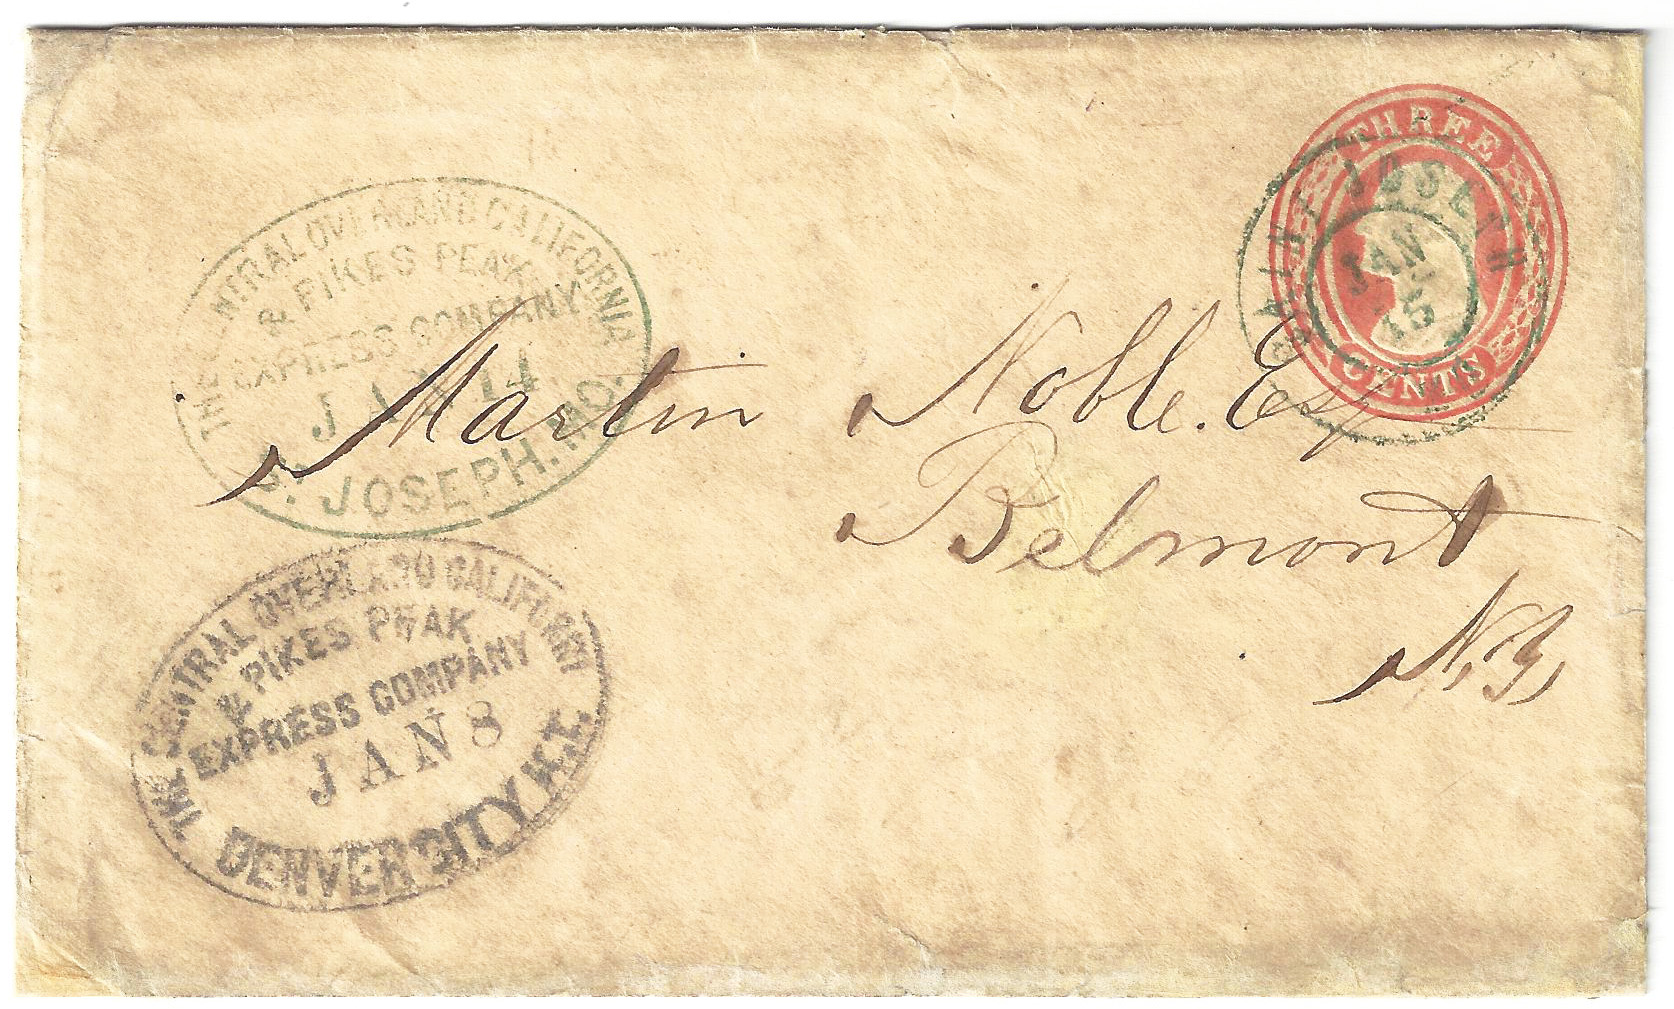 THREE
CENTS
SAINT JOSEPH
JAN
15
THE CENTRAL OVERLAND CALIFORNIA
& PIKES PEAK
EXPRESS COMPANY
JAN 14
ST. JOSEPH. MO.
Martin Noble. Esq
Belmont
N.Y,
THE CENTRAL OVERLAND CALIFORNI
& PIKES PEAK
EXPRESS COMPANY
JAN 8
DENVER CITY, K.T.